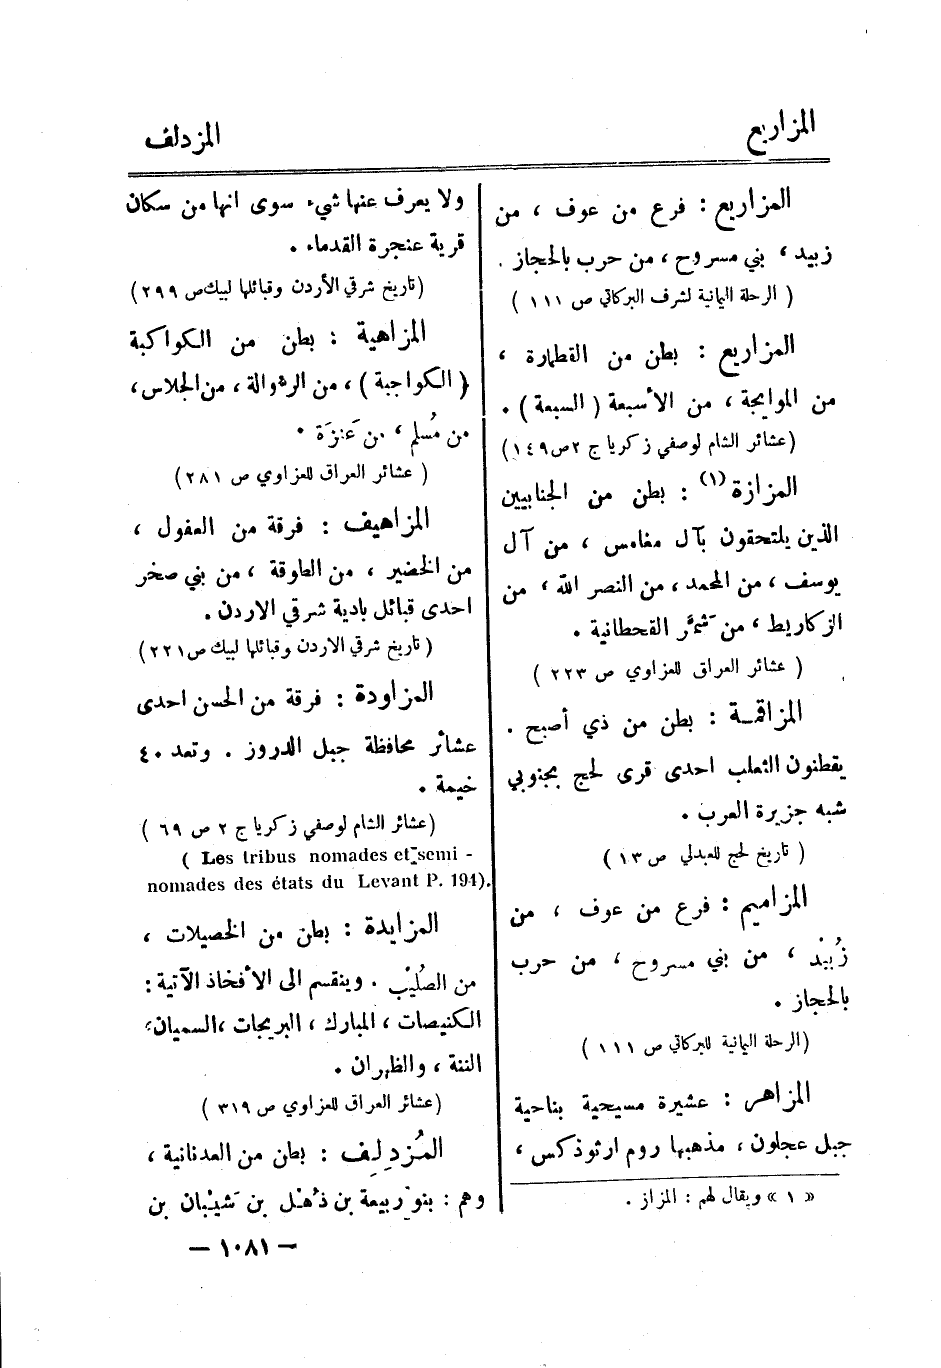 المزاريع
المزدلف
المزاريع : فرع من عوف ، من
زبيد ، بني مسروح ، من حرب بالحجاز .
( الرحلة اليمانية لشرف البركاتي ص ١١١ )
المزاريع : بطن من القطارة ،
من الموايجة ، من الأسبعة ( السبعة ) .
( عشائر الشام لوصفي زكريا ج ٢ ص ١٤٩ )
المزازة (١) : بطن من الجنابيين
الذين يلتحقون بآل مغامس ، من آل
يوسف ، من المحمد ، من النصر الله ، من
الزكاريط ، من شمَّر القحطانية .
( عشائر العراق للعزاوي ص ٢٢٣ )
المزاقمة : بطن من ذي أصبح .
يقطنون الثعلب احدى قرى لحج بجنوبي
شبه جزيرة العرب .
( تاريخ لحج للعبدلي ص ١٣ )
المزاميم : فرع من عوف ، من
زُبيْد ، من بني مسروح ، من حرب
بالحجاز .
( الرحلة اليمانية للبركاتي ص ١١١ )
المزاهر : عشيرة مسيحية بناحية
جبل عجلون ، مذهبها روم ارثوذكس ،
« ١ » ويقال لهم : المزاز .
ولا يعرف عنها شيء سوى انها من سكان
قرية عنجرة القدماء .
( تاريخ شرقي الأردن وقبائلها لبيك ص ٢٩٩ )
المزاهية : بطن من الكواكبة
( الكواجبة ) ، من الروالة ، من الجلاس ،
من مُسلم ، من عَنزَة .
( عشائر العراق للعزاوي ص ٢٨١ )
المزاهيف : فرقة من الغفول ،
من الخضير ، من الطوقة ، من بني صخر
احدى قبائل بادية شرقي الاردن .
( تاريخ شرقي الاردن وقبائلها لبيك ص ٢٢١ )
المزاودة : فرقة من الحسن احدى
عشائر محافظة جبل الدروز . وتعد ٤٠
خيمة .
( عشائر الشام لوصفي زكريا ج ٢ ص ٦٩ )
( Les tribus nomades et semi -
nomades des états du Levant P. 194).
المزايدة : بطن من الخصيلات ،
من الصُلَيْب . وينقسم الى الأفخاذ الآتية :
الكنيصات ، المبارك ، البريجات ، السميان ،
الننة ، والظهران .
( عشائر العراق للعزاوي ص ٣١٩ )
المُزدلِف : بطن من العدنانية ،
وهم : بنو ربيعة بن ذُهْل بن شَيْبان بن
— ١٠٨١ —